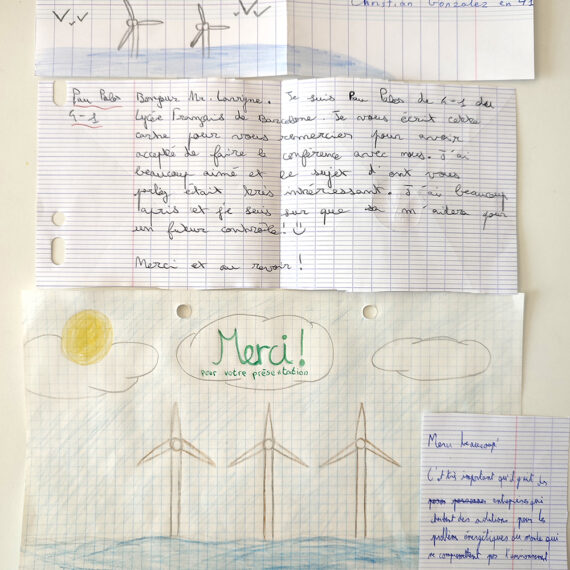 Christian Gonzalez en 41
Pau Palos
4-1
Bonjour Mr. Lavigne. Je suis Pau Palos de 4-1 du
Lycée Français de Barcelone. Je vous écrit cette
carte pour vous remercier pour avoir
accepté de faire le conférence avec nous. J'ai
beaucoup aimé et le sujet d'ont vous
parlez était très interessant. J'ai beaucoup
apris et je suis sur que sa m'aidera pour
un futur contrôle! ☺
Merci et au revoir!
Merci!
pour votre présentation
Merci beaucoup
C'est très important qu'il y ait des
entreprises qui
tentent des solutions pour les
problèm énergétiques du monde qui
ne compromettent pas l'environnement